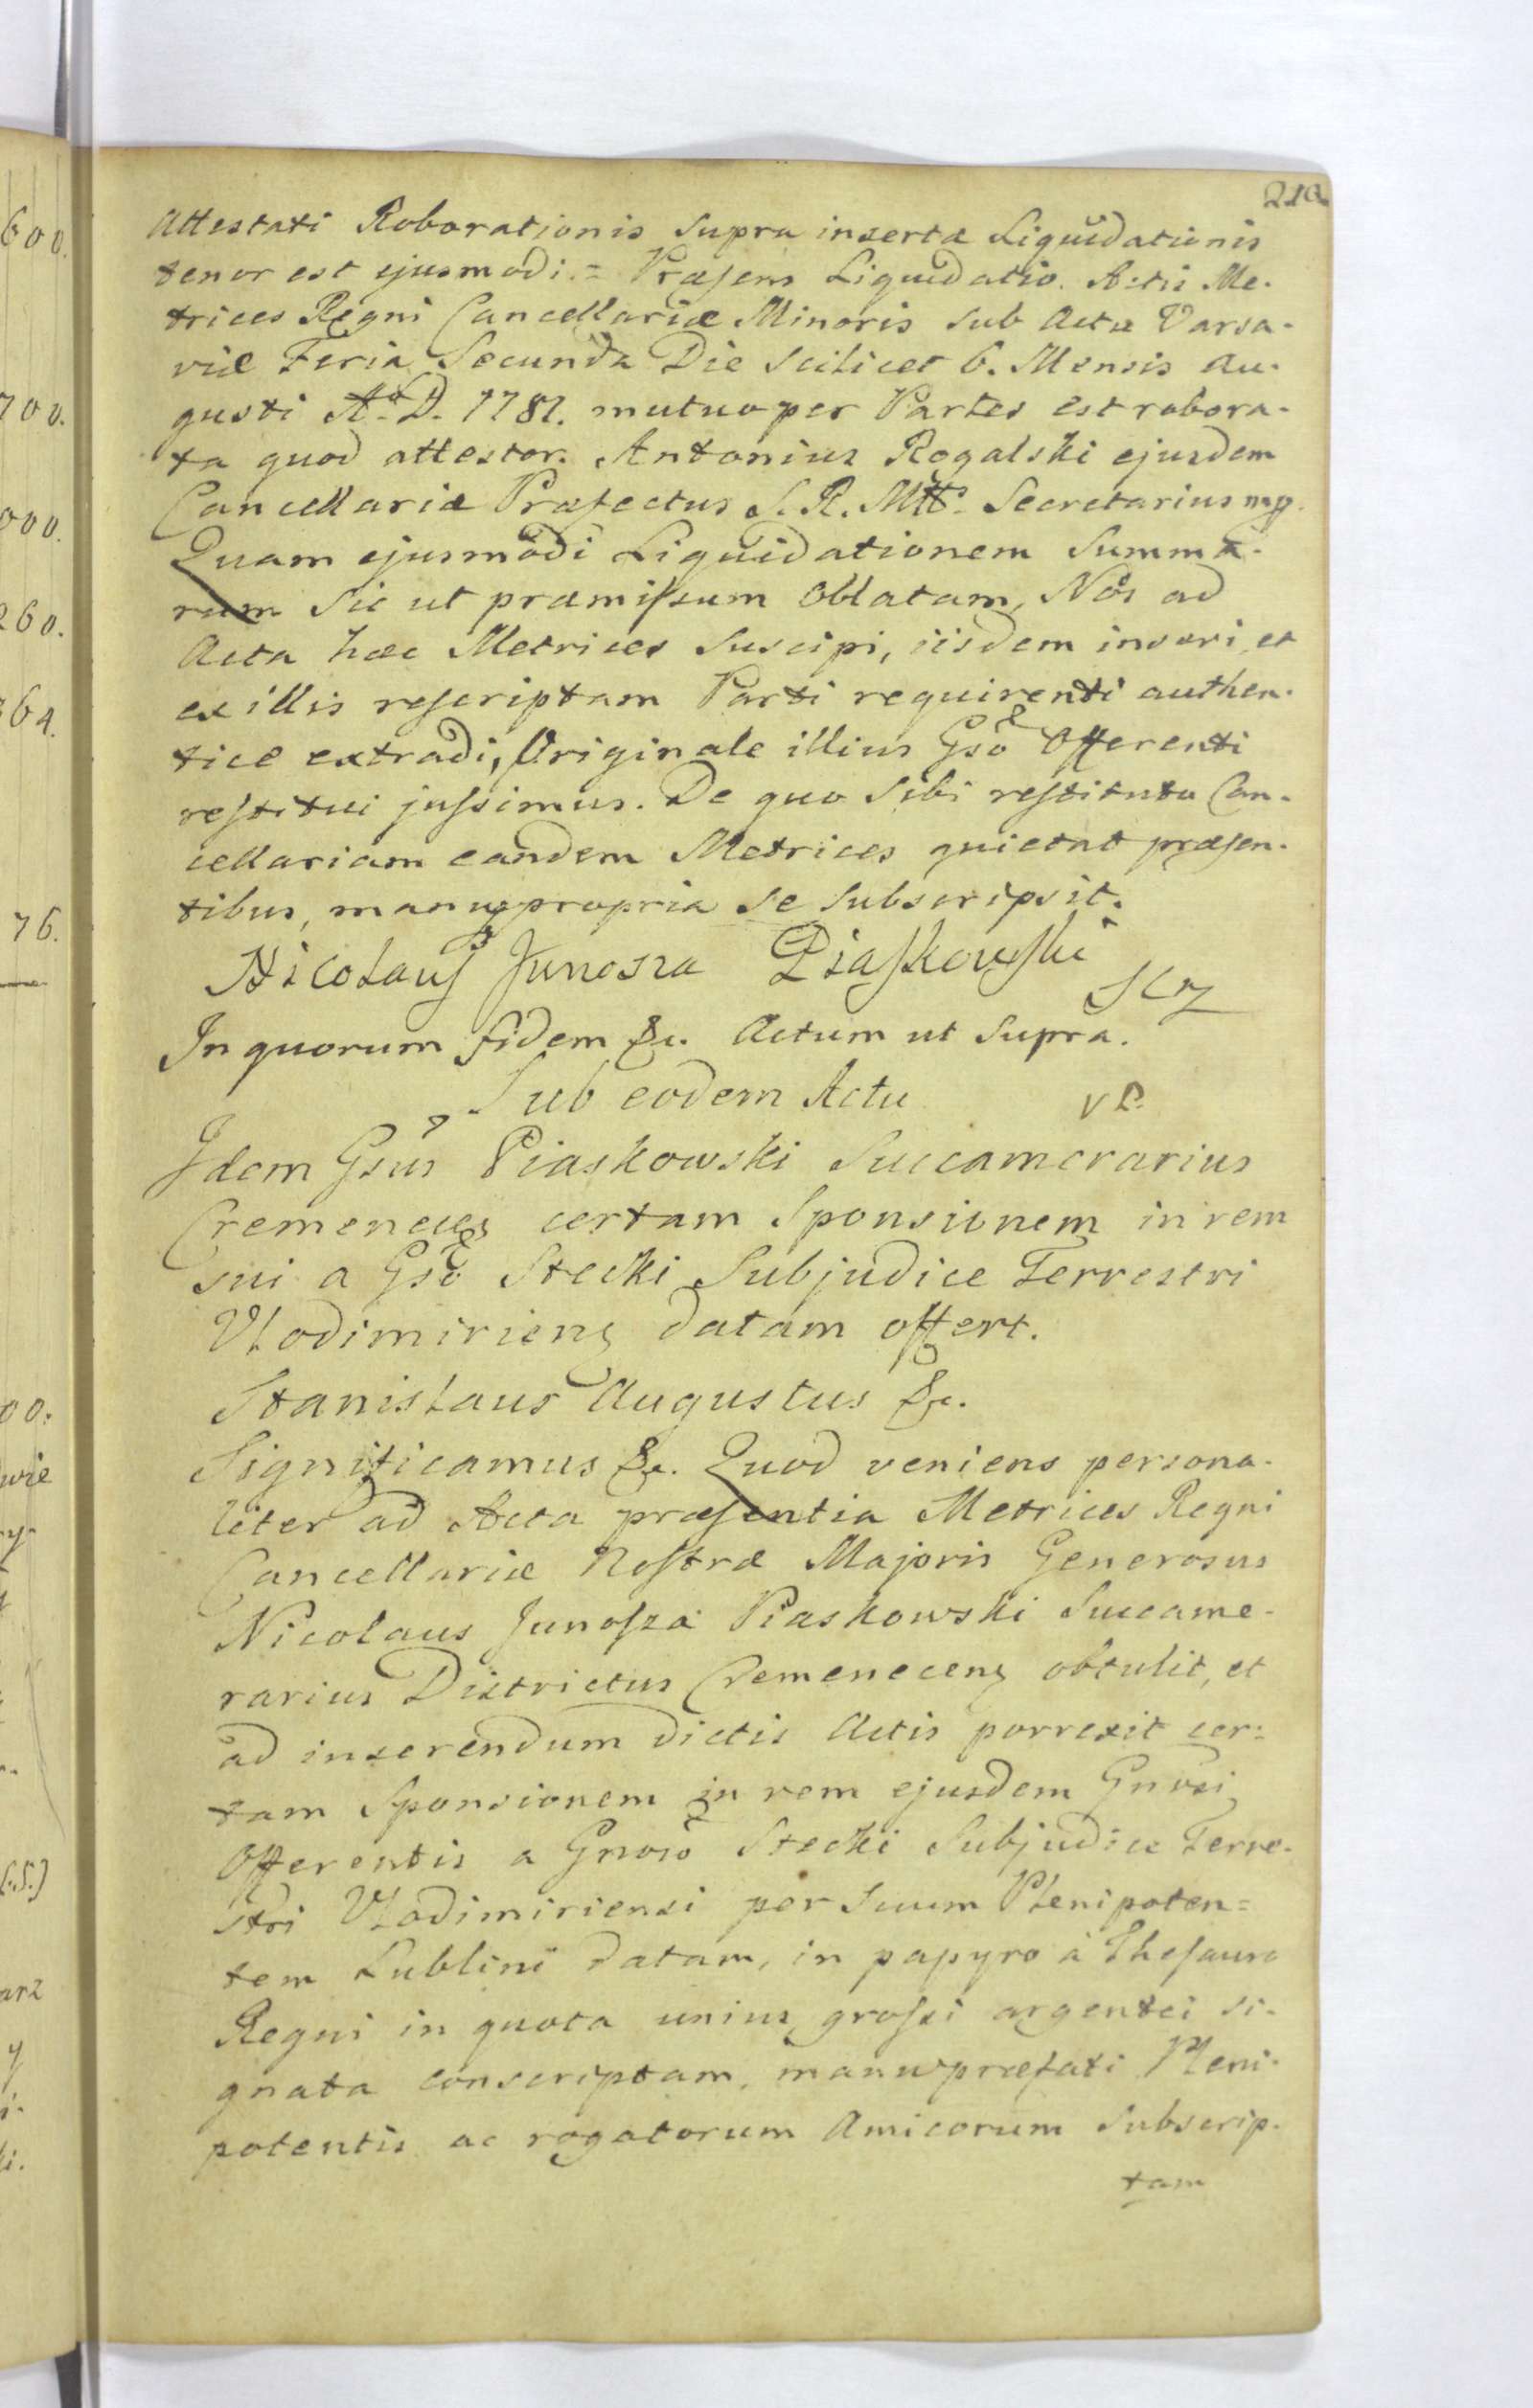 210.
Attestati Roborationis supra insertæ Liquidationis
tenor est ejusmodi = Præsens Liquidatio Actis Me-
trices Regni Cancellariæ Minoris sub Actu Varsa-
viæ Feria Secunda Die scilicet 6. Mensis Au-
gusti A. D. 1781. mutuo per Partes est robora-
ta quod attestor. Antonius Rogalski ejusdem
Cancellariæ Præfectus S. R. Mtt. Secretarius mp.
Quam ejusmodi Liquidationem Summa-
rum sic ut præmissum oblatam, Nos ad
Acta hæc Metrices suscipi, iisdem inseri, et
ex illis rescriptam Parti requirenti authen-
tice extradi, Originale illius Gsō Offerenti
restitui jussimus. De quo sibi restituto Can-
cellariam eandem Metrices quietat præsen-
tibus, manu propria se subscripsit.
Nicolaus Junosza Piaskowski
In quorum fidem &c. Actum ut supra.
Sub eodem Actu
Idem Gsus Piaskowski Succamerarius
certam Sponsionem in rem
sui a Gsō Stecki Subjudice Terrestri
Vlodimirieng datam offert.
Stanislaus Augustus &c.
Significamus &c. Quod veniens persona-
liter ad Acta præsentia Metrices Regni
Cancellariæ Nostræ Majoris Generosus
Nicolaus Junosza Piaskowski Succame-
rarius Districtus Cremeneceng obtulit, et
ad inserendum dictis Actis porrexit cer-
tam Sponsionem in rem ejusdem Gnosi
Offerentis a Gnosō Stecki Subjudice Terre-
stri Vlodimiriensi per suum Plenipoten=
tem Lublini datam, in papyro à Thesauro
Regni in quota unius grossi argentei si-
gnata conscriptam, manu præfati Pleni-
potentis ac rogatorum Amicorum subscrip-
tam